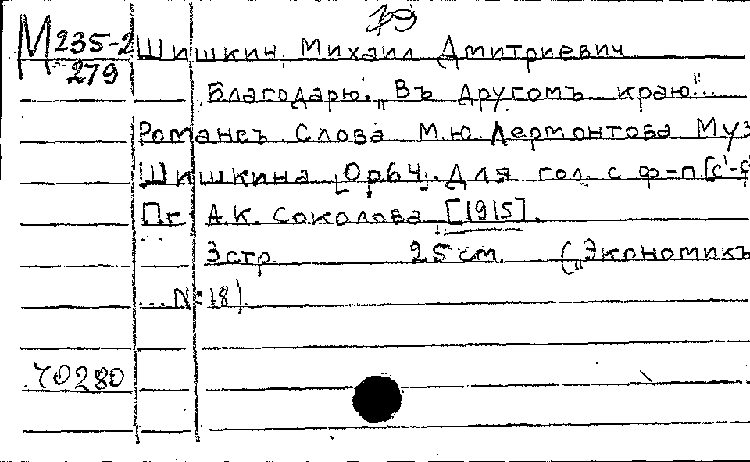 79
М 235-2 Шишкин, Михаил Дмитриевич
279
Благодарю. „Въ другомъ краю"...
Романсъ Слова М.Ю. Лермонтова Муз
Шишкина Ор64. Для гол. с ф-п [c'-
Пг А.К. Соколова [1915].
3стр 25 см. („Экономикъ
... N: 18).
70280